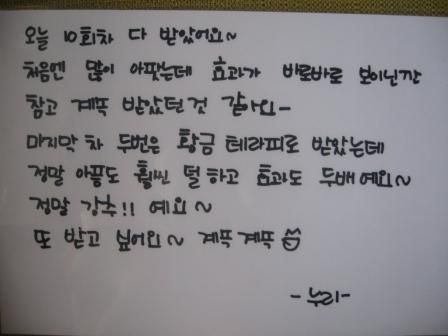 오늘 10회차 다 받았어요~
처음엔 많이 아팟는데 효과가 바로바로 보이닌깐
참고 계폭 받았던것 같아요-
마지막 차 두번은 황금 테라피로 받았는데
정말 아픔도 훨씬 덜 하고 효과도 두배 예요~
정말 강추!! 예요~
또 받고 싶어요~ 계폭 계폭
-누리-